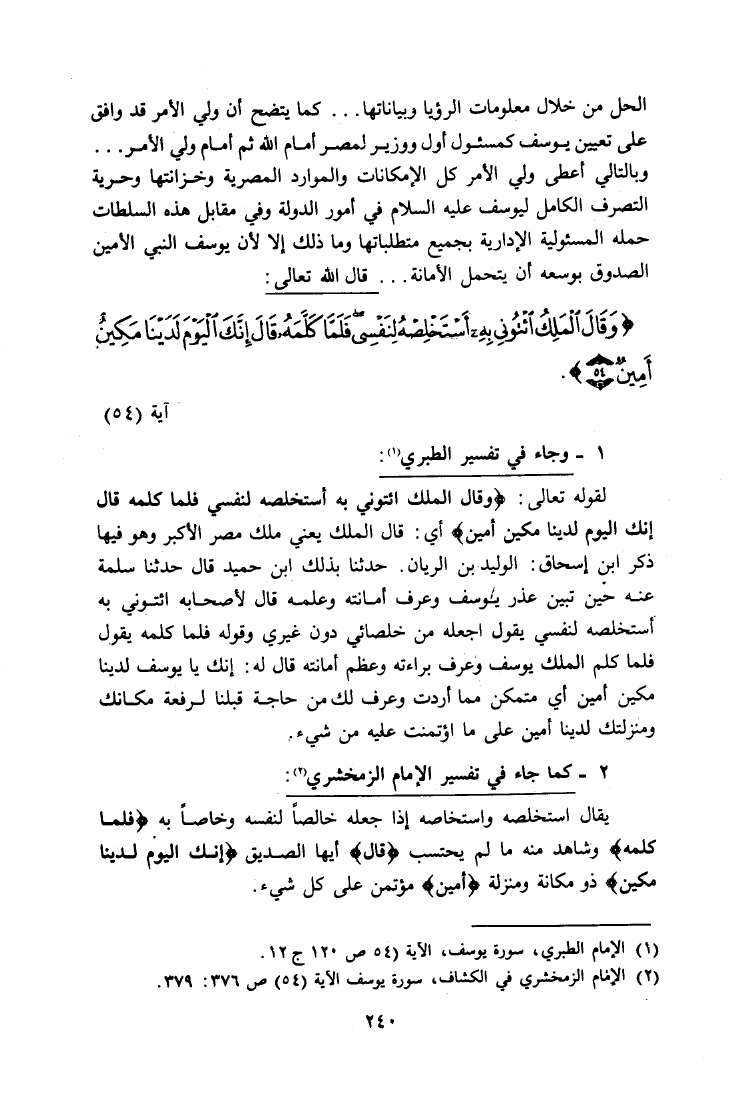 الحل من خلال معلومات الرؤيا وبياناتها... كما يتضح أن ولي الأمر قد وافق
على تعيين يوسف كمسئول أول ووزير لمصر أمام الله ثم أمام ولي الأمر...
وبالتالي أعطى ولي الأمر كل الإمكانات والموارد المصرية وخزانتها وحرية
التصرف الكامل ليوسف عليه السلام في أمور الدولة وفي مقابل هذه السلطات
حمله المسئولية الإدارية بجميع متطلباتها وما ذلك إلا لأن يوسف النبي الأمين
الصدوق بوسعه أن يتحمل الأمانة... قال الله تعالى:
﴿وَقَالَ ٱلْمَلِكُ ٱئْتُونِي بِهِۦٓ أَسْتَخْلِصْهُ لِنَفْسِي ۖ فَلَمَّا كَلَّمَهُۥ قَالَ إِنَّكَ ٱلْيَوْمَ لَدَيْنَا مَكِينٌ
أَمِينٌ ٥٤﴾.
آية (٥٤)
١ - وجاء في تفسير الطبري(١):
لقوله تعالى: ﴿وقال الملك ائتوني به أستخلصه لنفسي فلما كلمه قال
إنك اليوم لدينا مكين أمين﴾ أي: قال الملك يعني ملك مصر الأكبر وهو فيها
ذكر ابن إسحاق: الوليد بن الريان. حدثنا بذلك ابن حميد قال حدثنا سلمة
عنه حين تبين عذر يوسف وعرف أمانته وعلمه قال لأصحابه ائتوني به
أستخلصه لنفسي يقول اجعله من خلصائي دون غيري وقوله فلما كلمه يقول
فلما كلم الملك يوسف وعرف براءته وعظم أمانته قال له: إنك يا يوسف لدينا
مكين أمين أي متمكن مما أردت وعرف لك من حاجة قبلنا لرفعة مكانك
ومنزلتك لدينا أمين على ما اؤتمنت عليه من شيء.
٢ - كما جاء في تفسير الإمام الزمخشري(٢):
يقال استخلصه واستخاصه إذا جعله خالصاً لنفسه وخاصاً به ﴿فلما
كلمه﴾ وشاهد منه ما لم يحتسب ﴿قال﴾ أيها الصديق ﴿إنك اليوم لدينا
مكين﴾ ذو مكانة ومنزلة ﴿أمين﴾ مؤتمن على كل شيء.
(١) الإمام الطبري، سورة يوسف، الآية (٥٤ ص ١٢٠ ج ١٢.
(٢) الإمام الزمخشري في الكشاف، سورة يوسف الآية (٥٤) ص ٣٧٦: ٣٧٩.
٢٤٠